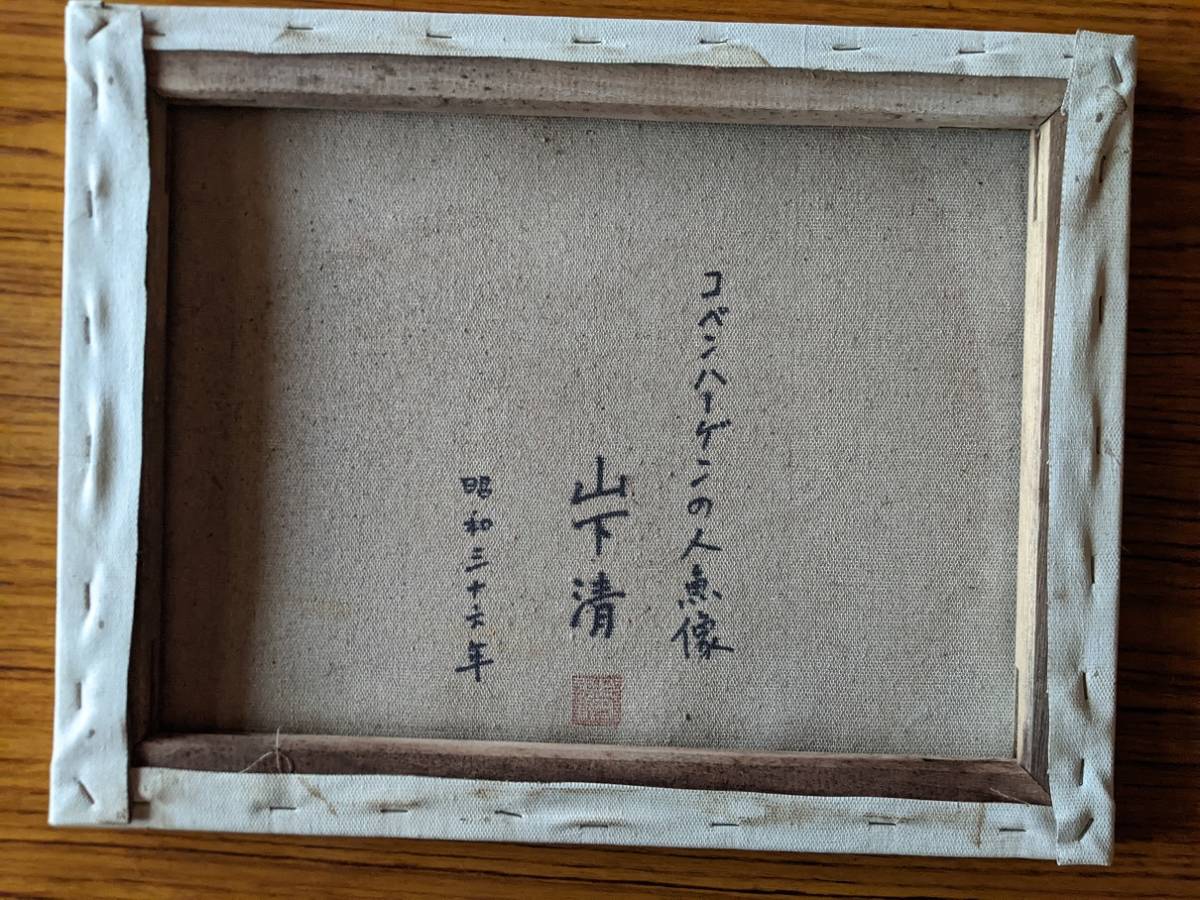 コペンハーゲンの人魚像
山下清
昭和三十六年